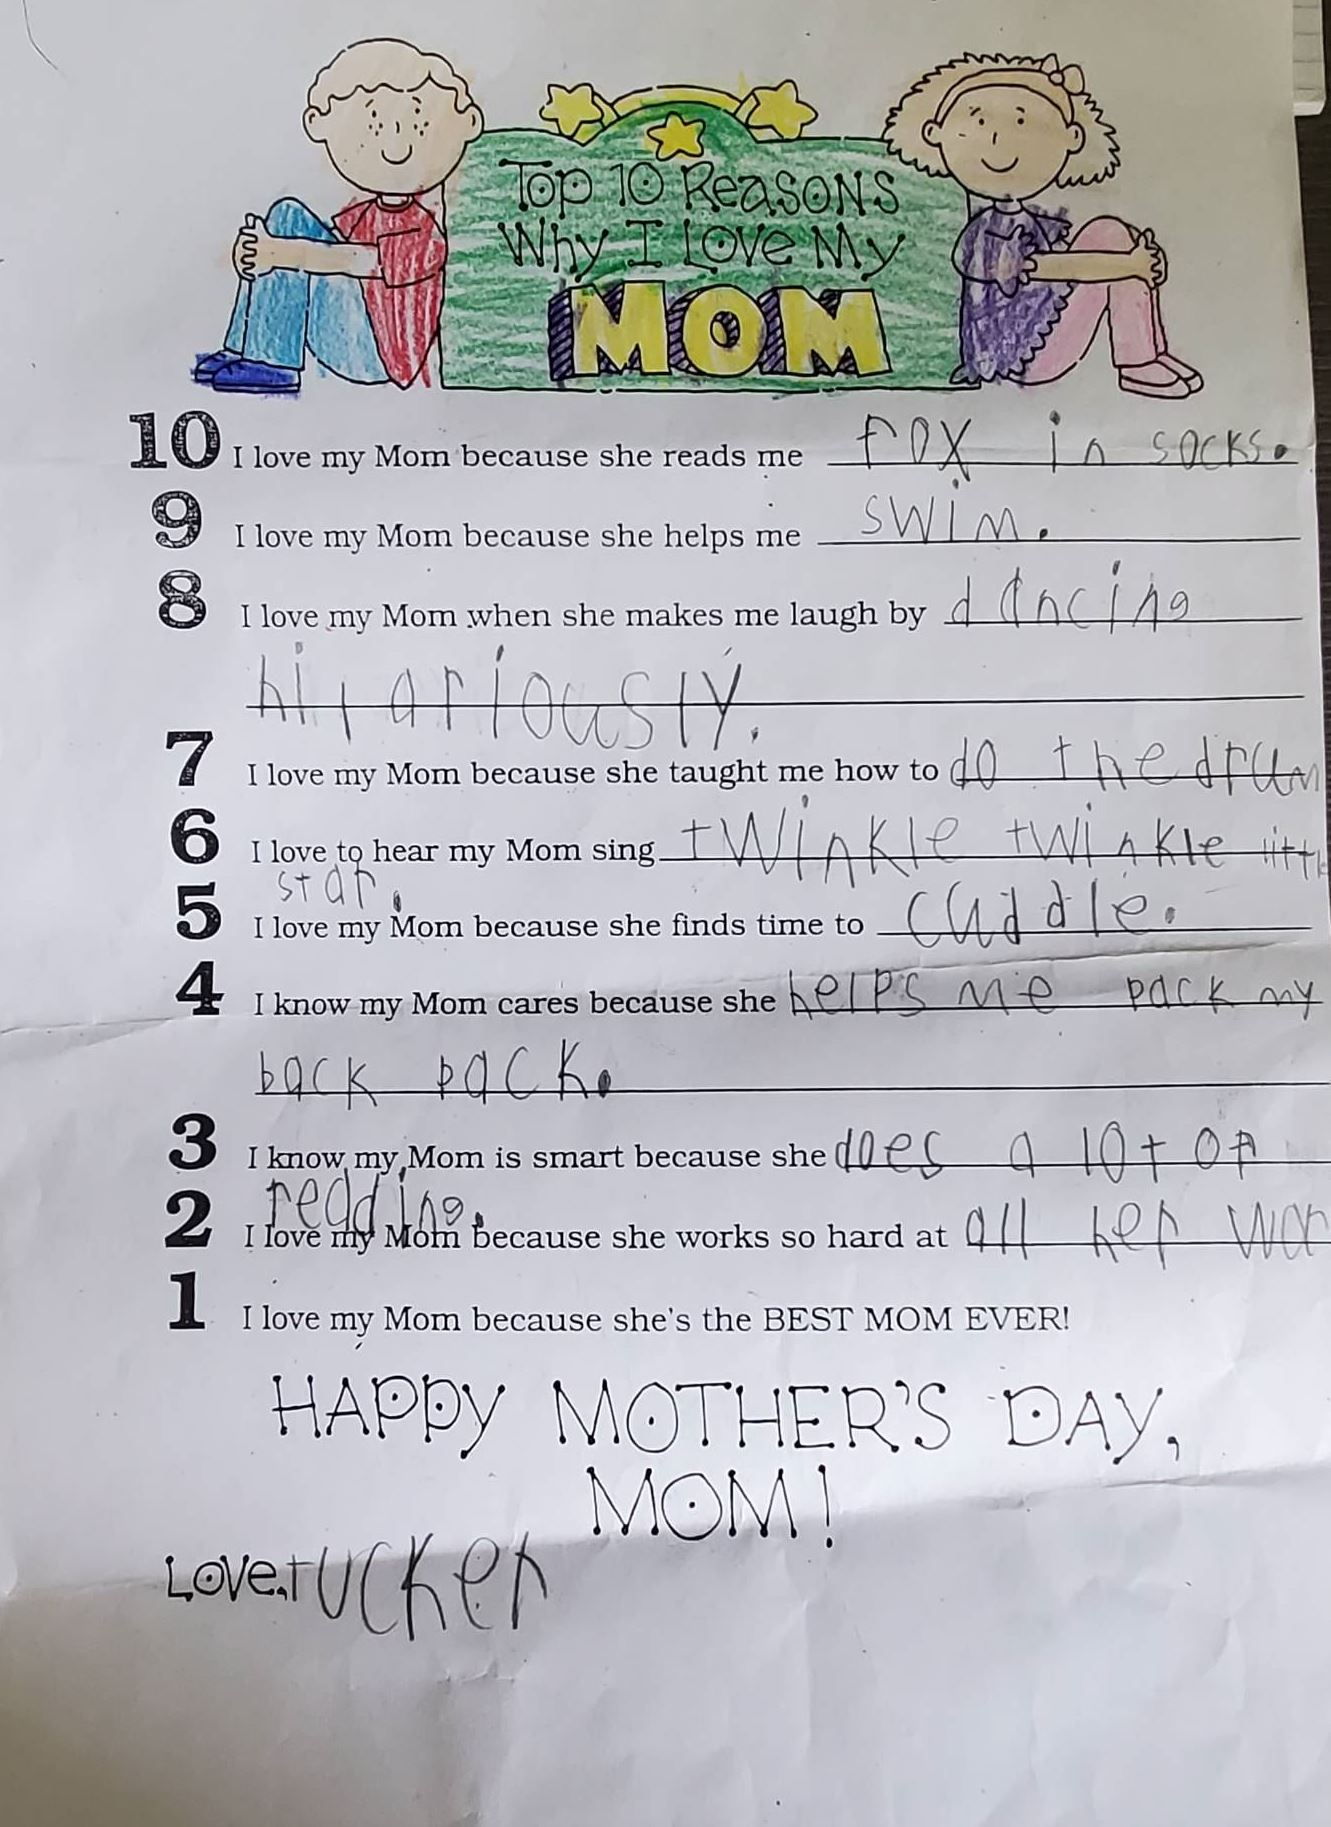 Top 10 Reasons
Why I Love My
MOM
10 I love my Mom because she reads me fox in socks.
9 I love my Mom because she helps me swim.
8 I love my Mom when she makes me laugh by dancing
hilariously.
7 I love my Mom because she taught me how to do the drum
6 I love to hear my Mom sing twinkle twinkle little
star.
5 I love my Mom because she finds time to cuddle.
4 I know my Mom cares because she helps me pack my
back pack.
3 I know my Mom is smart because she does a lot of
reading.
2 I love my Mom because she works so hard at all her wor
1 I love my Mom because she's the BEST MOM EVER!
HAPPY MOTHER'S DAY,
MOM!
LOVE, tucker